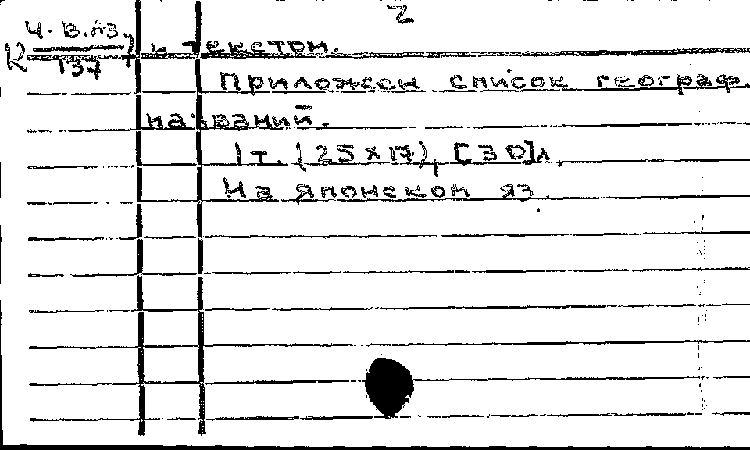 2
К Ч.В.Аз. и текстом.
137
Приложен список географ.
названий.
1 т. (25 x 17), [30] л.
На японском яз.